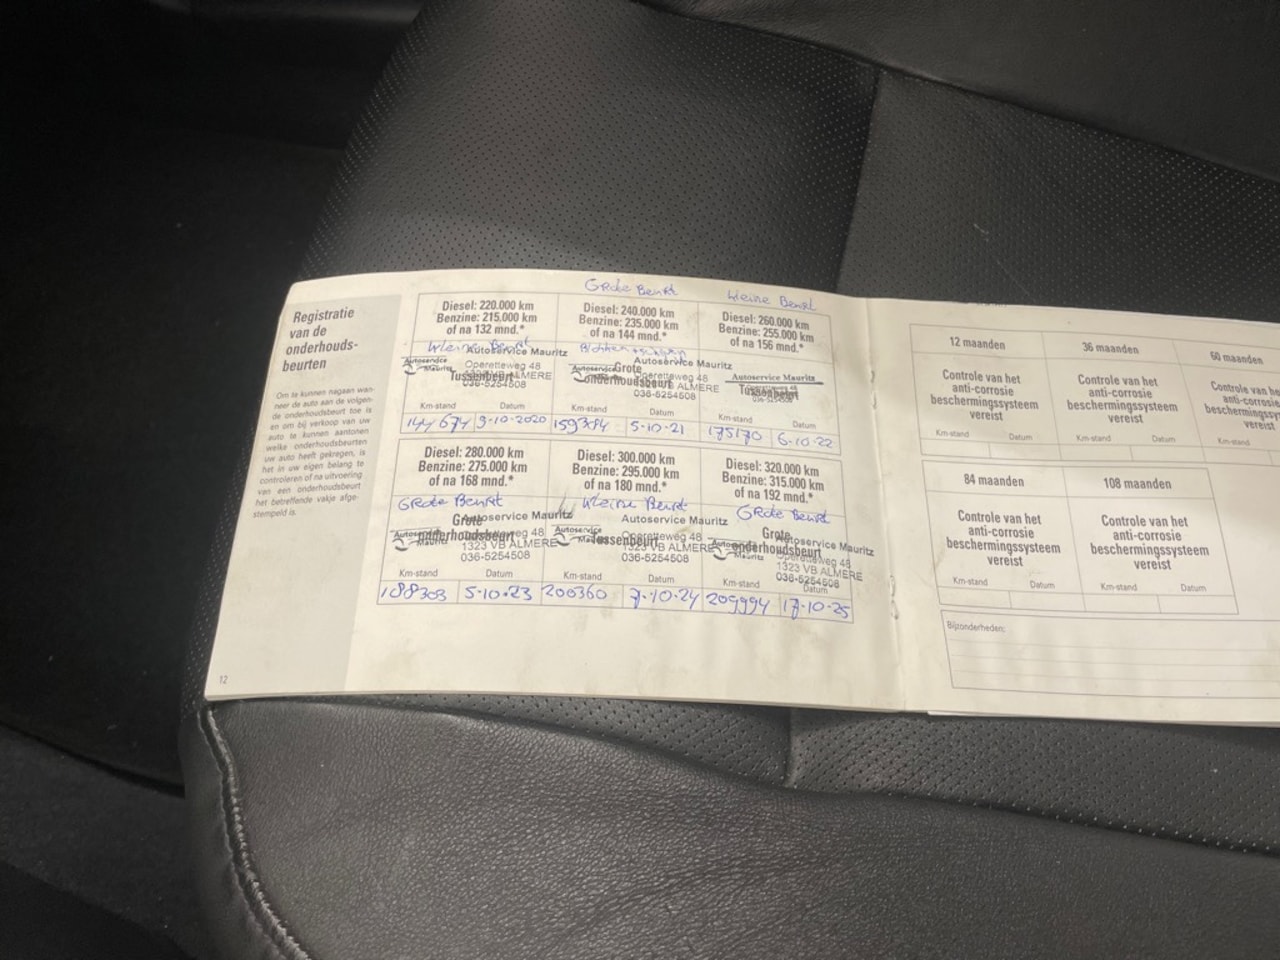 Registratie
van de
onderhouds-
beurten
Om te kunnen nagaan wan-
neer de auto aan de volgen-
de onderhoudsbeurt toe is
en om bij verkoop van uw
auto te kunnen aantonen
welke onderhoudsbeurten
uw auto heeft gekregen, is
het in uw eigen belang te
controleren of na uitvoering
van een onderhoudsbeurt
het betreffende vakje afge-
stempeld is.
12
Diesel: 220.000 km
Benzine: 215.000 km
of na 132 mnd.*
Kleine Beurt
Autoservice Mauritz
Operetteweg 48
Tussenbeurt
ALMERE
036-5254508
Km-stand Datum
144674 9-10-2020
Grote Beurt
Diesel: 240.000 km
Benzine: 235.000 km
of na 144 mnd.*
Autoservice Mauritz
Grote
onderhoudsbeurt
Operetteweg 48
ALMERE
036-5254508
Km-stand Datum
159384 5-10-21
Kleine Beurt
Diesel: 260.000 km
Benzine: 255.000 km
of na 156 mnd.*
Autoservice Mauritz
Tussenbeurt
Km-stand Datum
175170 6-10-22
Diesel: 280.000 km
Benzine: 275.000 km
of na 168 mnd.*
Grote Beurt
Autoservice Mauritz
Grote
onderhoudsbeurt
1323 VB ALMERE
036-5254508
Km-stand Datum
188303 5-10-23
Diesel: 300.000 km
Benzine: 295.000 km
of na 180 mnd.*
Kleine Beurt
Autoservice Mauritz
Tussenbeurt
1323 VB ALMERE
036-5254508
Km-stand Datum
200360 7-10-24
Diesel: 320.000 km
Benzine: 315.000 km
of na 192 mnd.*
Grote Beurt
Grote
onderhoudsbeurt
Autoservice Mauritz
Operetteweg 48
1323 VB ALMERE
036-5254508
Km-stand Datum
209994 17-10-25
12 maanden
Controle van het
anti-corrosie
beschermingssysteem
vereist
Km-stand Datum
36 maanden
Controle van het
anti-corrosie
beschermingssysteem
vereist
Km-stand Datum
60 maanden
Controle van het
anti-corrosie
vereist
Km-stand
84 maanden
Controle van het
anti-corrosie
beschermingssysteem
vereist
Km-stand Datum
108 maanden
Controle van het
anti-corrosie
beschermingssysteem
vereist
Km-stand Datum
Bijzonderheden: